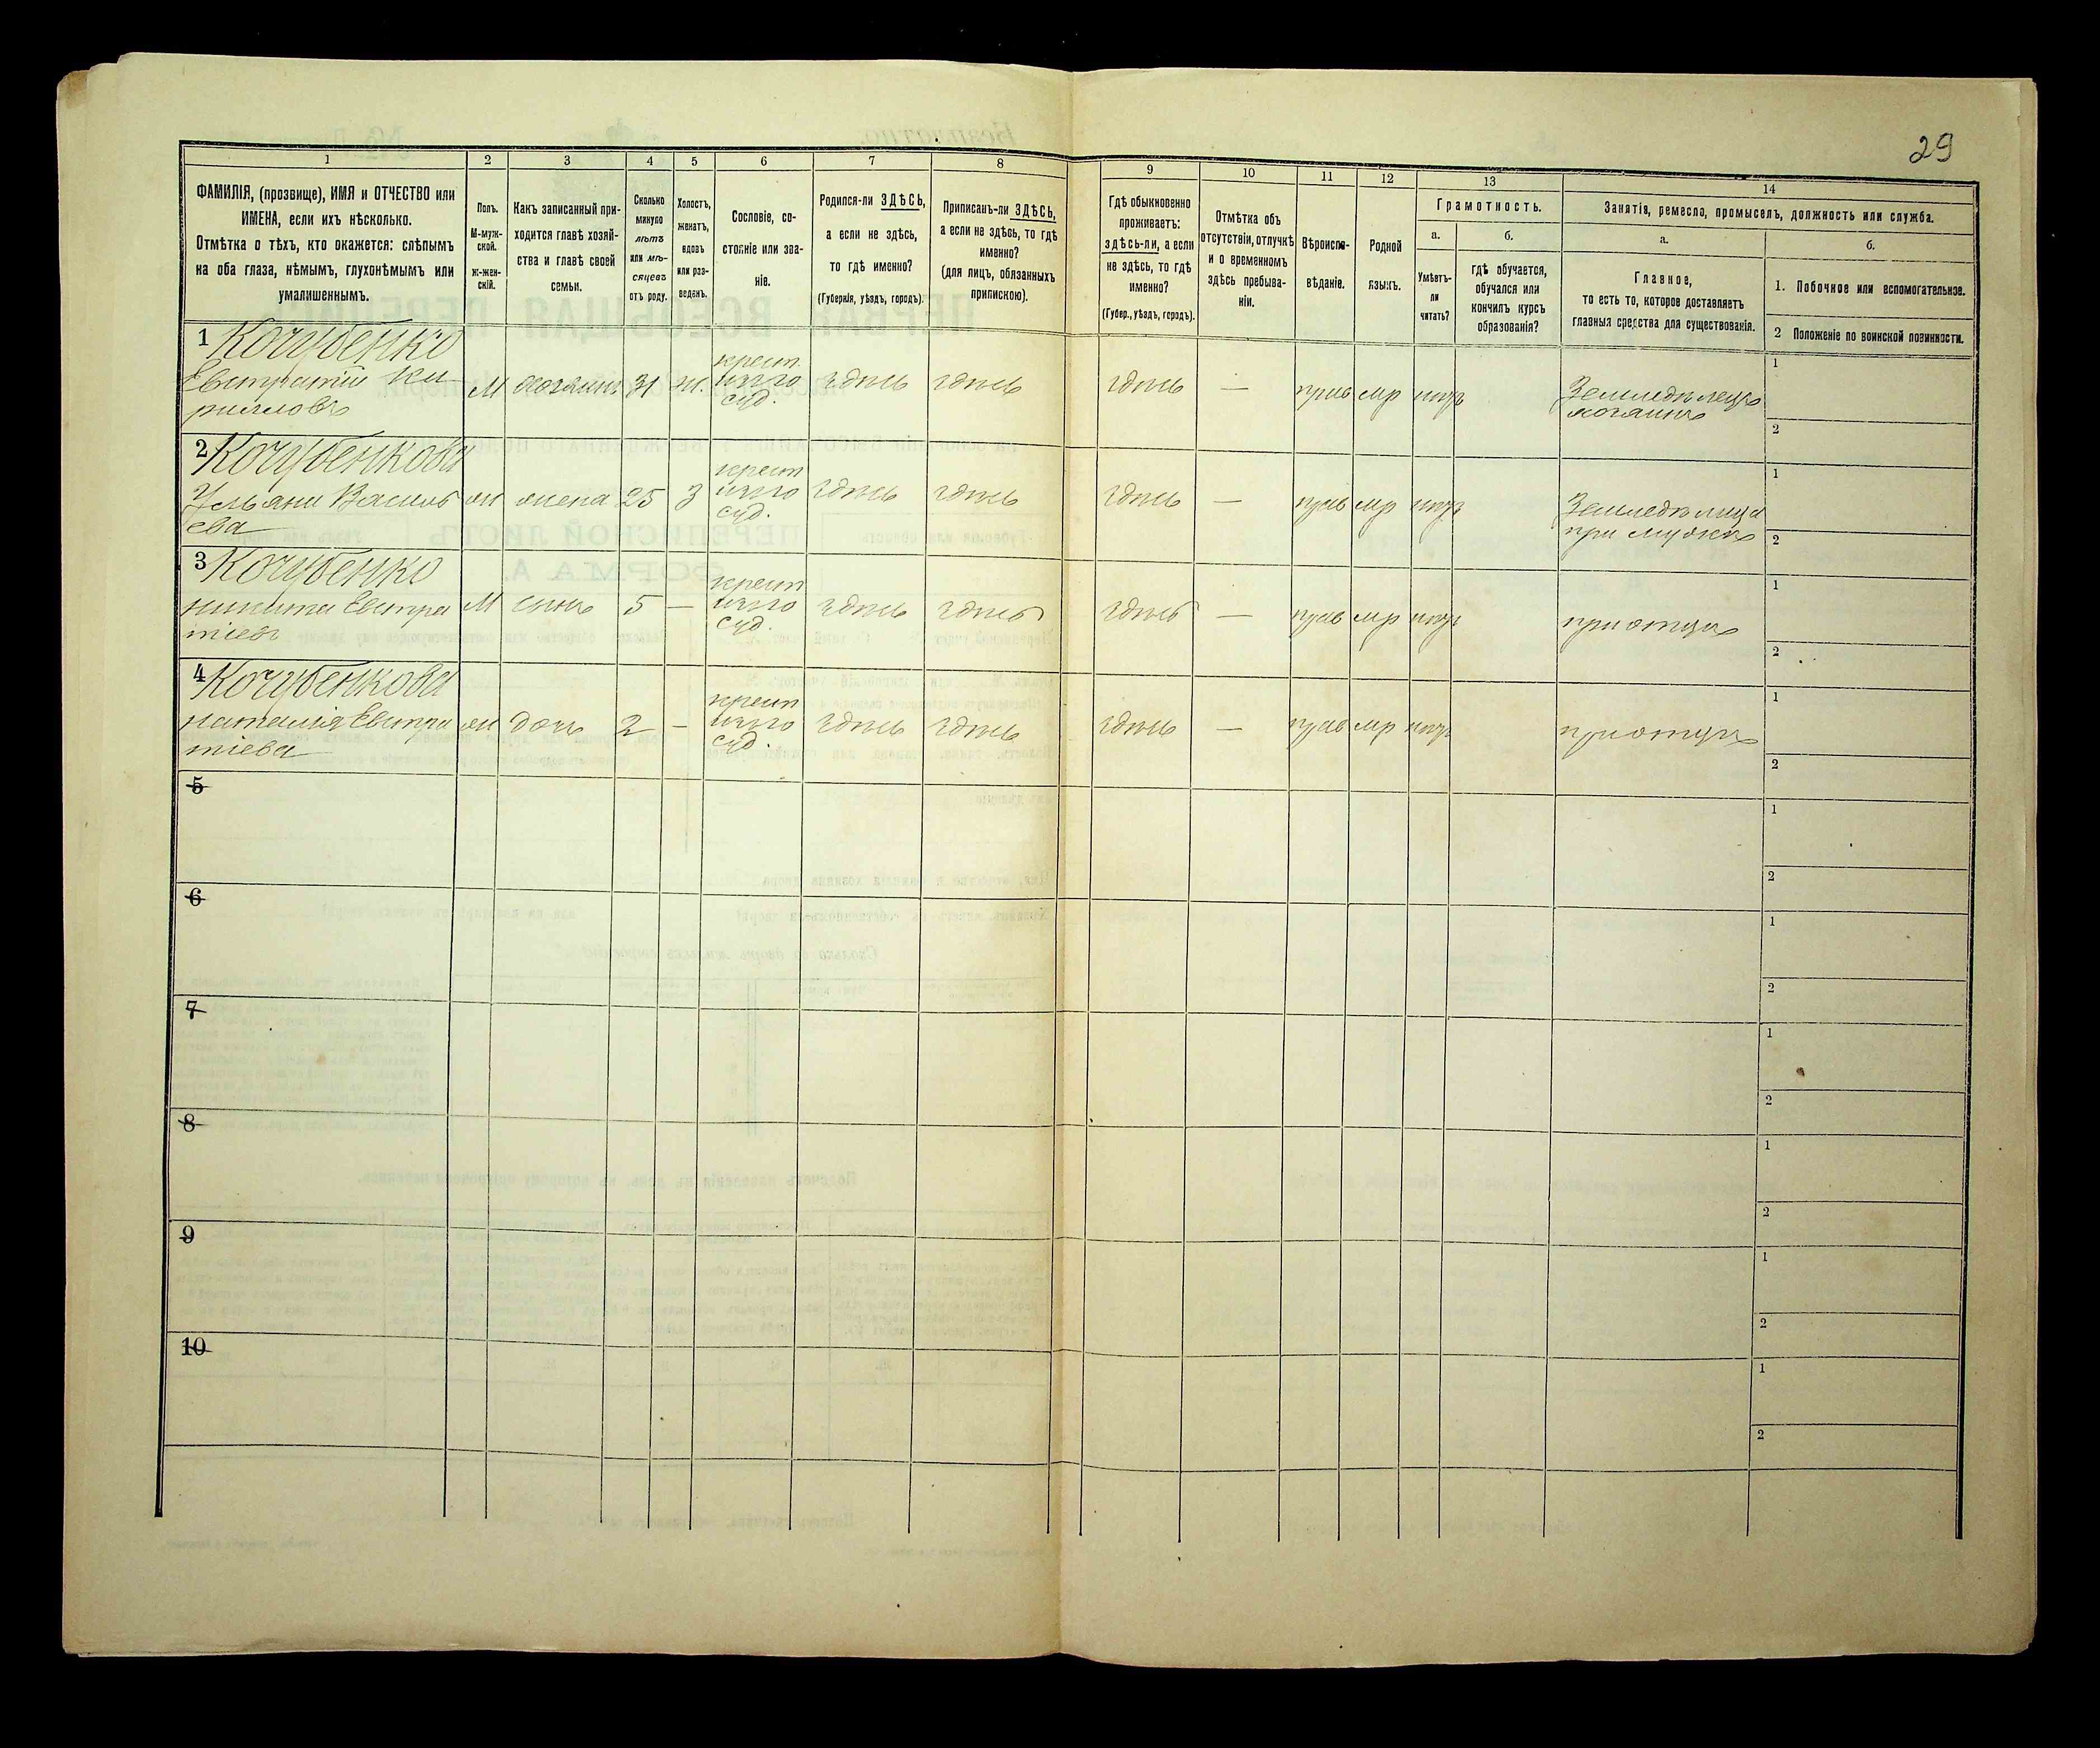 29
1 2 3 4 5 6 7 8 9 10 11 12 13 14
ФАМИЛІЯ, (прозвище), ИМЯ и ОТЧЕСТВО или
ИМЕНА, если ихъ нѣсколько.
Отмѣтка о тѣхъ, кто окажется: слѣпымъ
на оба глаза, нѣмымъ, глухонѣмымъ или
умалишеннымъ.
Полъ.
М-муж-
ской.
ж-жен-
скій.
Какъ записанный при-
ходится главѣ хозяй-
ства и главѣ своей
семьи.
Сколько
минуло
лѣтъ
или мѣ-
сяцевъ
отъ роду.
Холостъ,
женатъ,
вдовъ
или раз-
веденъ.
Сословіе, со-
стояніе или зва-
ніе.
Родился-ли ЗДѢСЬ,
а если не здѣсь,
то гдѣ именно?
(Губернія, уѣздъ, городъ).
Приписанъ-ли ЗДѢСЬ,
а если не здѣсь, то гдѣ
именно?
(для лицъ, обязанныхъ
припискою).
Гдѣ обыкновенно
проживаетъ:
здѣсь-ли, а если
не здѣсь, то гдѣ
именно?
(Губер., уѣздъ, городъ).
Отмѣтка объ
отсутствіи, отлучкѣ
и о временномъ
здѣсь пребыва-
ніи.
Вѣроиспо-
вѣданіе.
Родной
языкъ.
Грамотность.
а.
Умѣетъ-
ли
читать?
б.
гдѣ обучается,
обучался или
кончилъ курсъ
образованія?
Занятія, ремесло, промыселъ, должность или служба.
а.
Главное,
то есть то, которое доставляетъ
главныя средства для существованія.
б.
1. Побочное или вспомогательное.
2 Положеніе по воинской повинности.
1 Кочубенко
Евстратій Ки-
рилловъ
М хозяинъ 31 ж.
крест.
суд.
здѣсь здѣсь здѣсь — прав мр
Земледѣлецъ
хозяинъ
1
2
2 Кочубенкова
Ульяна Василь
ева
ж жена 25 з
крест
суд.
здѣсь здѣсь здѣсь — прав мр
Земледѣлица
при мужѣ
1
2
3 Кочубенко
Никита Евстра
тіевъ
М сынъ 5 —
крест
суд.
здѣсь здѣсь здѣсь — прав мр
при отцѣ
1
2
4 Кочубенкова
Наталія Евстра
тіева
ж дочь 2 —
крест
суд.
здѣсь здѣсь здѣсь — прав мр
при отцѣ
1
2
5
1
2
6
1
2
7
1
2
8
1
2
9
1
2
10
1
2